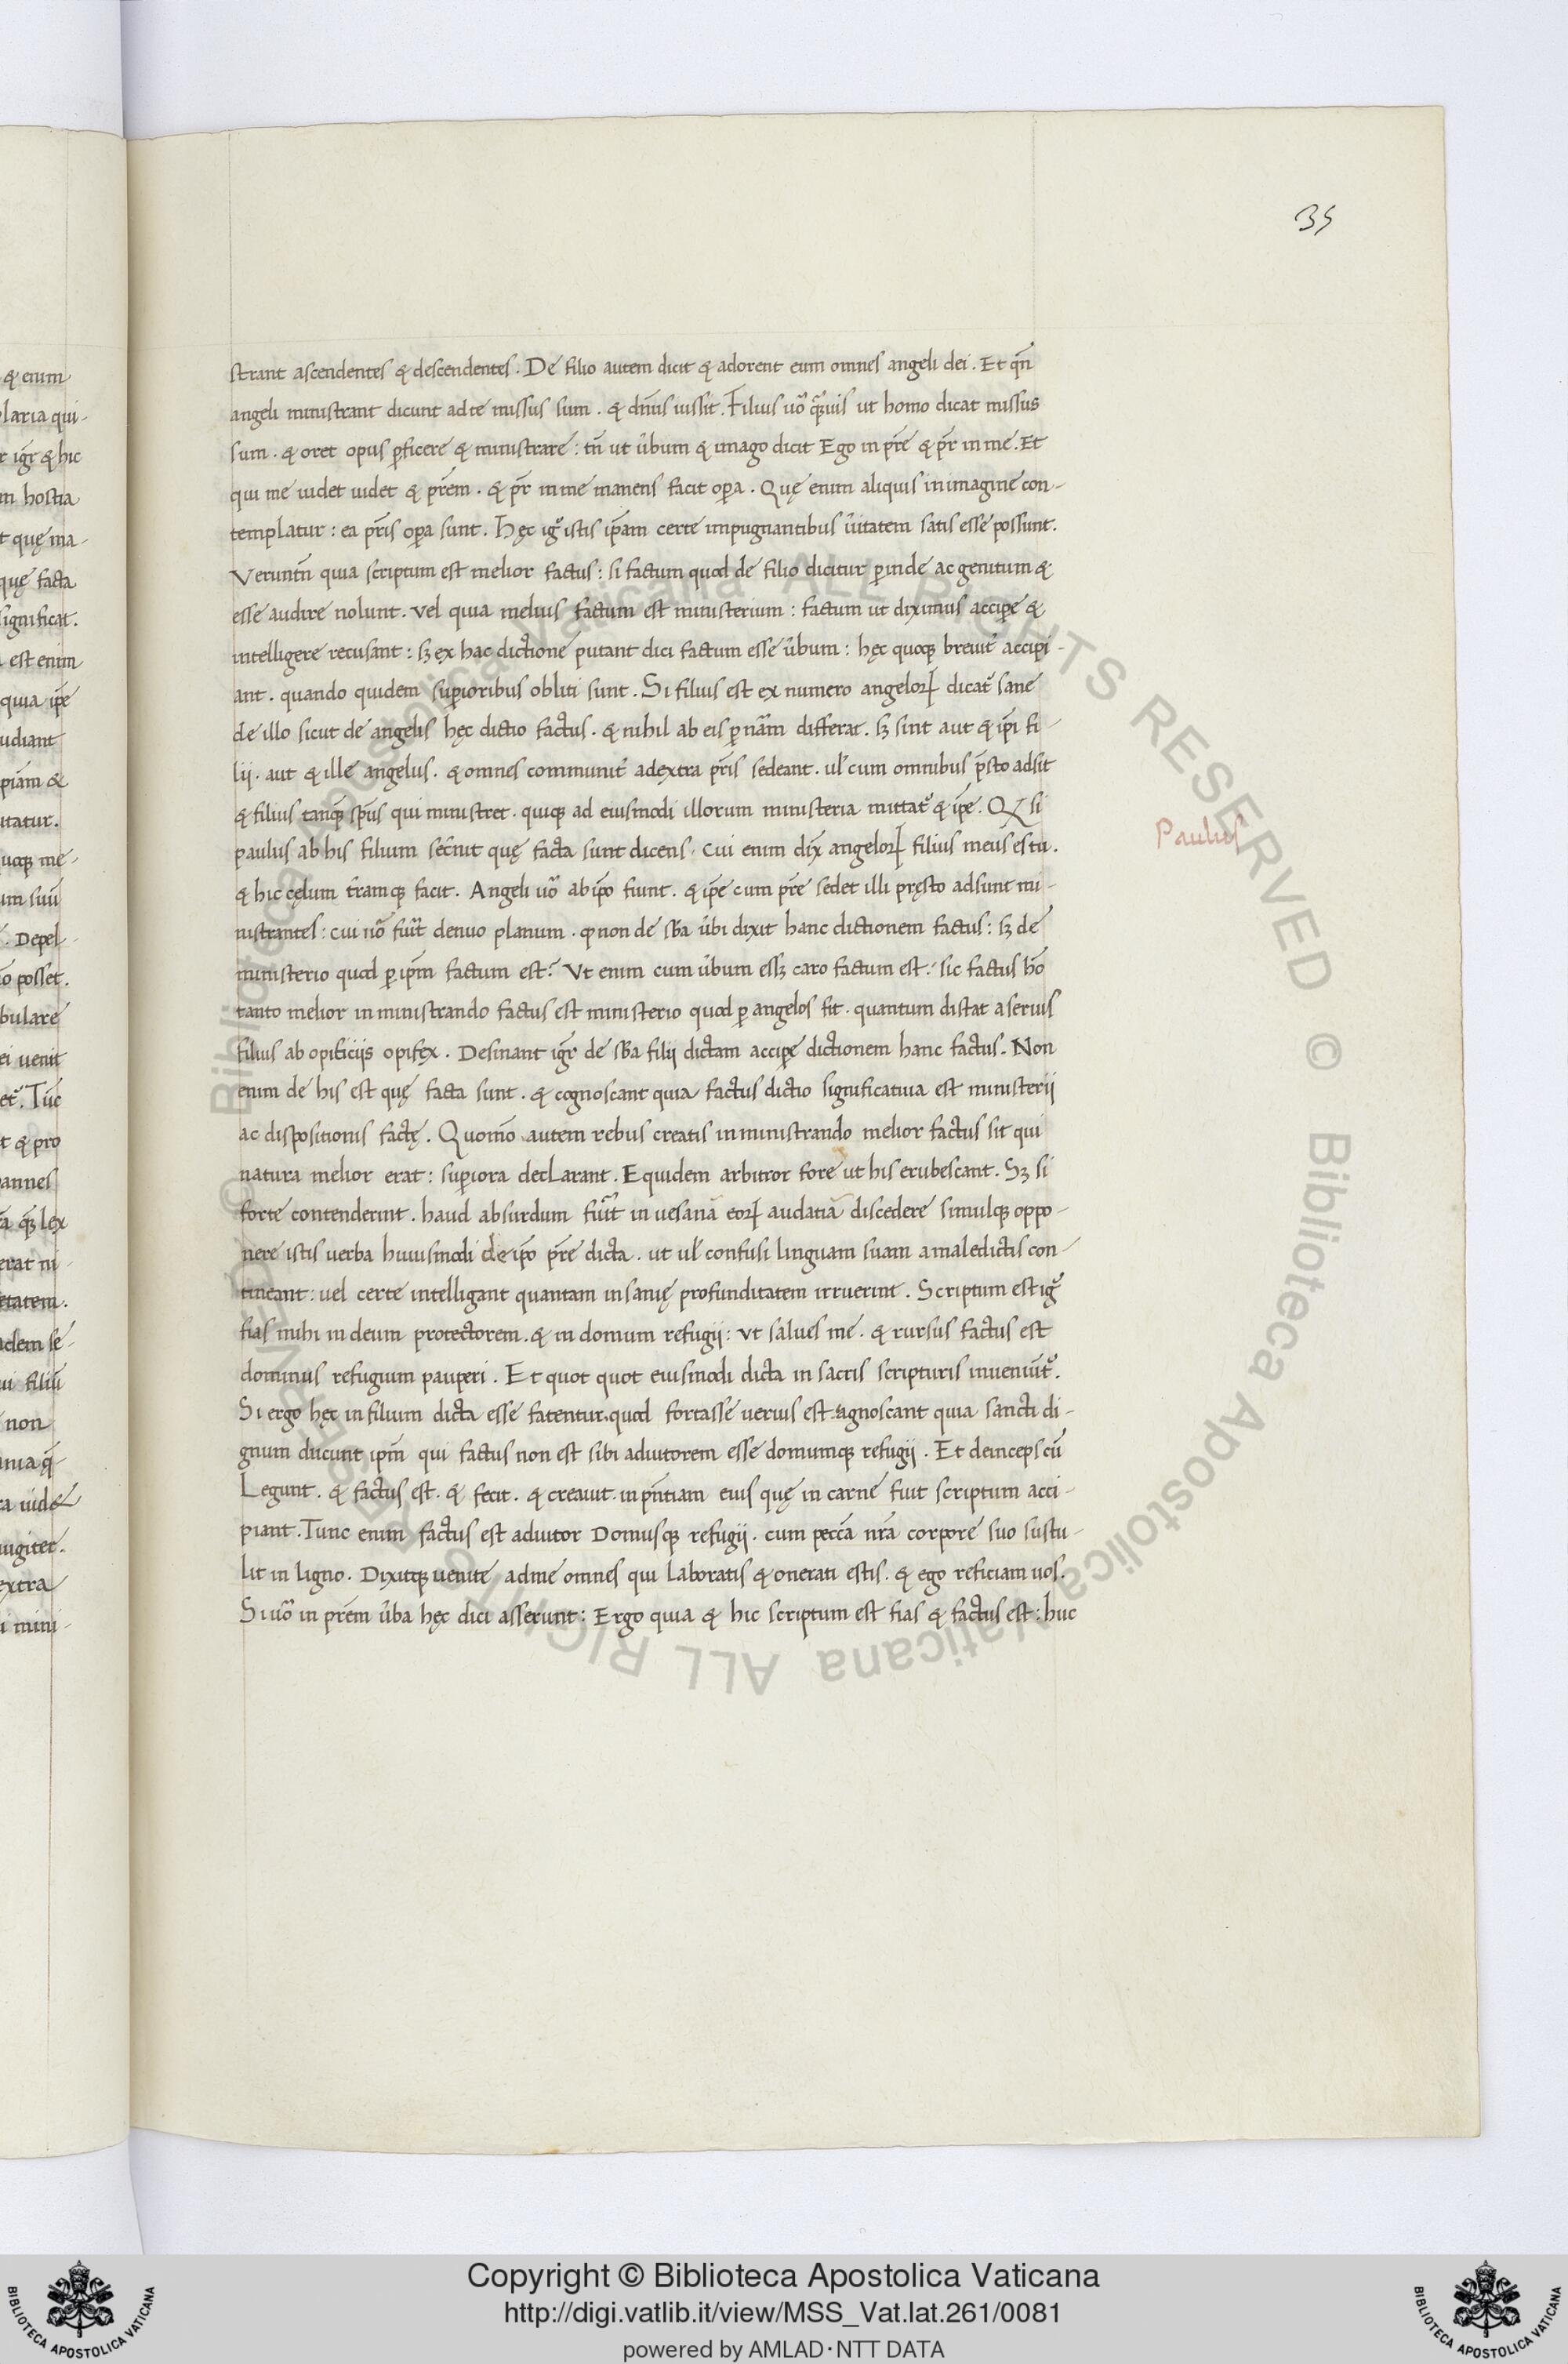 35
strant ascendentes & descendentes. De filio autem dicit & adorent eum omnes angeli dei. Et qn̄
angeli ministrant dicunt ad te missus sum. & dn̄us iussit. Filius uo᷑ quāuis ut homo dicat missus
sum. & oret opus ꝑficere & ministrare: tn̄ ut ûbum & imago dicit Ego in pr̄e & pr̄ in me. Et
qui me uidet uidet & pr̄em. & pr̄ in me manens facit oꝑa. Quę enim aliquis in imagine con-
templatur: ea pr̄is oꝑa sunt. Hęc ig᷑ istis ip̄am certe impugnantibus ûitatem satis esse possunt.
Veruntn̄ quia scriptum est melior factus: si factum quod de filio dicitur ꝑinde ac genitum &
esse audire nolunt. vel quia melius factum est ministerium: factum ut diximus acciꝑe &
intelligere recusant: sꝫ ex hac dictione putant dici factum esse ûbum: hęc quoqꝫ breuit᷑ accipi-
ant. quando quidem suꝑioribus obliti sunt. Si filius est ex numero angeloꝝ dicat᷑ sane
de illo sicut de angelis hęc dictio factus. & nihil ab eis ꝑ nām differat. sꝫ sint aut & ip̄i fi-
lij. aut & ille angelus. & omnes communit᷑ adextra pr̄is sedeant. ul᷑ cum omnibus p̄sto adsit
& filius tanqꝫ sp̄us qui ministret. quiqꝫ ad eiusmodi illorum ministeria mittat᷑ & ip̄e. Qꝫ si
paulus ab his filium secnit quę facta sunt dicens. cui enim dix̄ angeloꝝ filius meus es tu.
& hic cęlum t᷑ramqꝫ facit. Angeli uo᷑ ab ip̄o fiunt. & ip̄e cum pr̄e sedet illi pręsto adsunt mi-
nistrantes: cui nō fu᷑it denuo planum. ꝙ non de sƀa ûbi dixit hanc dictionem factus: sꝫ de
ministerio quod ꝑ ip̄m factum est? Vt enim cum ûbum essꝫ caro factum est: sic factus hō
tanto melior in ministrando factus est ministerio quod ꝑ angelos fit. quantum distat a seruis
filius ab opificijs opifex. Desinant igr̄ de sƀa filij dictam acciꝑe dictionem hanc factus. Non
enim de his est quę facta sunt. & cognoscant quia factus dictio significatiua est ministerij
ac dispositionis factę. Quomō autem rebus creatis in ministrando melior factus sit qui
natura melior erat: suꝑiora declarant. Equidem arbitror fore ut his erubescant. Sꝫ si
forte contenderint. haud absurdum fu᷑it in uesanā eoꝝ audatiā discedere simulqꝫ oppo-
nere istis uerba huiusmodi de ip̄o pr̄e dicta. ut ul᷑ confusi linguam suam a maledictis con-
tineant: uel certe intelligant quantam insanię profunditatem irruerint. Scriptum est ig᷑
fias mihi in deum protectorem. & in domum refugij: vt salues me. & rursus factus est
dominus refugium pauperi. Et quot quot eiusmodi dicta in sacris scripturis inueniūt᷑.
Si ergo hęc in filium dicta esse fatentur. quod fortasse uerius est. agnoscant quia sancti di-
gnum ducunt ip̄m qui factus non est sibi adiutorem esse domumqꝫ refugij. Et deinceps cū
Legunt. & factus est. & fecit. & creauit. in pn̄tiam eius quę in carne fuit scriptum acci-
piant. Tunc enim factus est adiutor Domusqꝫ refugij. cum peccā nrā corpore suo sustu-
lit in ligno. Dixitqꝫ uenite adme omnes qui laboratis & onerati estis. & ego reficiam uos.
Si uo᷑ in pr̄em ûba hęc dici asserunt: Ergo quia & hic scriptum est fias & factus est: huc
Paulus
& enim
laria qui-
r igr̄ & hic
m hostia
t quę ma-
quę facta
significat.
est enim
quia ip̄e
udiant
piām &
utatur.
uoqꝫ me-
um suū
. Depel-
ō posset.
bulare
ei uenit
et᷑. Tūc
t & pro
annes
ā qꝫ lex
erat ni-
etatem.
adem se-
ui filiū
non
ania q̄-
ra uide
iugiter.
extra
i mini-
© Biblioteca Apostolica Vaticana ALL RIGHTS RESERVED © Biblioteca Apostolica Vaticana ALL RIGHTS RESERVED
Copyright © Biblioteca Apostolica Vaticana
http://digi.vatlib.it/view/MSS_Vat.lat.261/0081
powered by AMLAD·NTT DATA
BIBLIOTECA APOSTOLICA VATICANA
BIBLIOTECA APOSTOLICA VATICANA